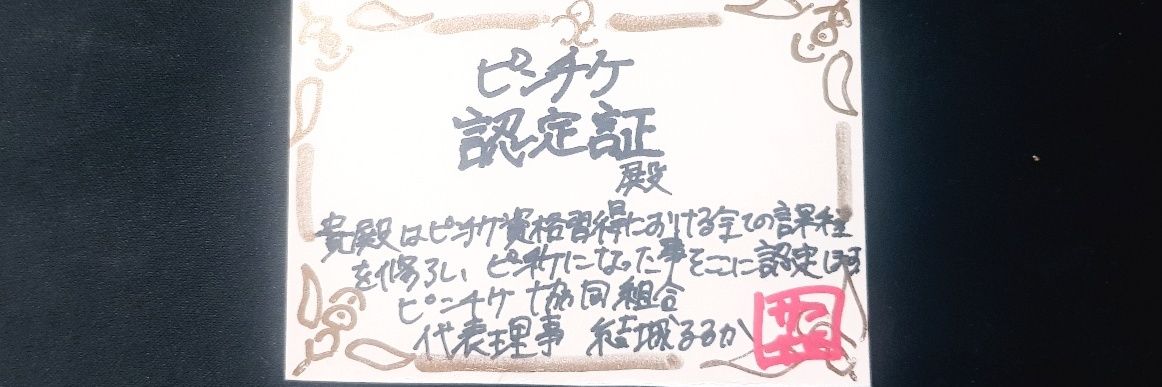 ピンチケ
認定証
殿
貴殿はピンチケ資格習得における全ての課程
を修了しい、ピンチケになった事をここに認定します
ピンチケ協同組合
代表理事 結城るるか